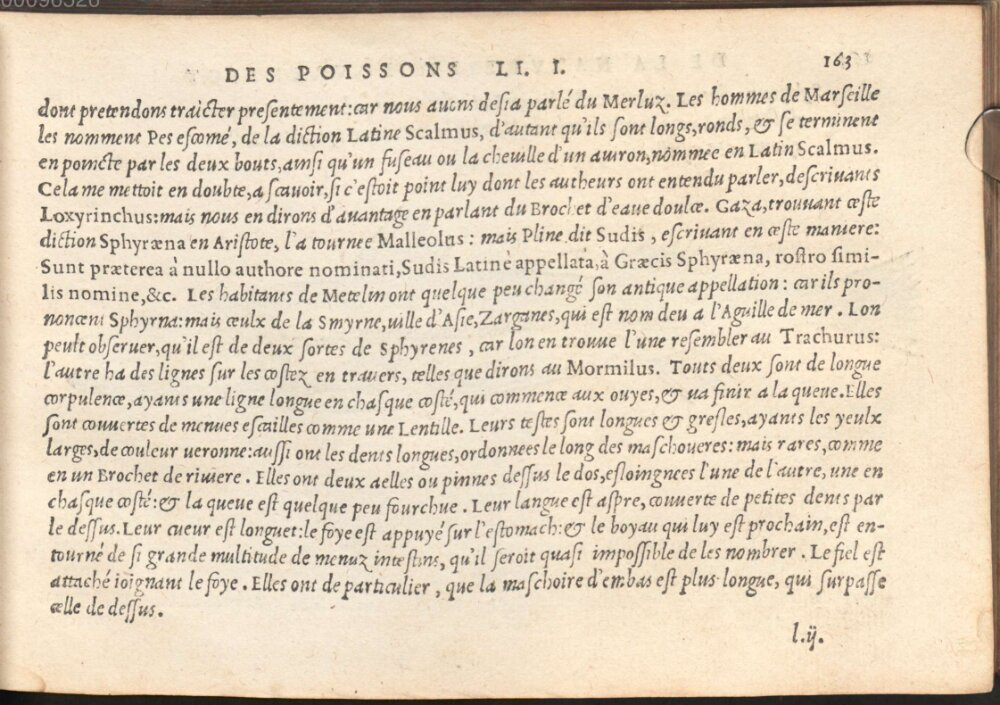 00098526
DES POISSONS LI. I. 163
dont pretendons traicter presentement: car nous auons desia parlé du Merluz. Les hommes de Marseille
les nomment Pes escomé, de la diction Latine Scalmus, d'autant qu'ils sont longs, ronds, & se terminent
en poincte par les deux bouts, ainsi qu'un fuseau ou la cheuille d'un auiron, nommee en Latin Scalmus.
Cela me mettoit en doubte, a scauoir, si c'estoit point luy dont les autheurs ont entendu parler, descriuants
Loxyrinchus: mais nous en dirons d'auantage en parlant du Brochet d'eaue doulce. Gaza, trouuant ceste
diction Sphyræna en Aristote, l'a tournee Malleolus: mais Pline dit Sudis, escriuant en ceste maniere:
Sunt præterea à nullo authore nominati, Sudis Latinè appellata, à Græcis Sphyræna, rostro simi-
lis nomine, &c. Les habitants de Metelin ont quelque peu changé son antique appellation: car ils pro-
noncent Sphyrna: mais ceulx de la Smyrne, uille d'Asie, Zarganes, qui est nom deu a l'Aguille de mer. Lon
peult obseruer, qu'il est de deux sortes de Sphyrenes, car lon en trouue l'une resembler au Trachurus:
l'autre ha des lignes sur les costez en trauers, telles que dirons au Mormilus. Touts deux sont de longue
corpulence, ayants une ligne longue en chasque costé, qui commence aux ouyes, & ua finir a la queue. Elles
sont couuertes de menues escailles comme une Lentille. Leurs testes sont longues & gresles, ayants les yeulx
larges, de couleur ueronne: aussi ont les dents longues, ordonnees le long des maschoueres: mais rares, comme
en un Brochet de riuiere. Elles ont deux aelles ou pinnes dessus le dos, esloingnees l'une de l'autre, une en
chasque costé: & la queue est quelque peu fourchue. Leur langue est aspre, couuerte de petites dents par
le dessus. Leur cueur est longuet: le foye est appuyé sur l'estomach: & le boyau qui luy est prochain, est en-
tourné de si grande multitude de menuz intestins, qu'il seroit quasi impossible de les nombrer. Le fiel est
attaché ioignant le foye. Elles ont de particulier, que la maschoire d'embas est plus longue, qui surpasse
celle de dessus.
l.ij.